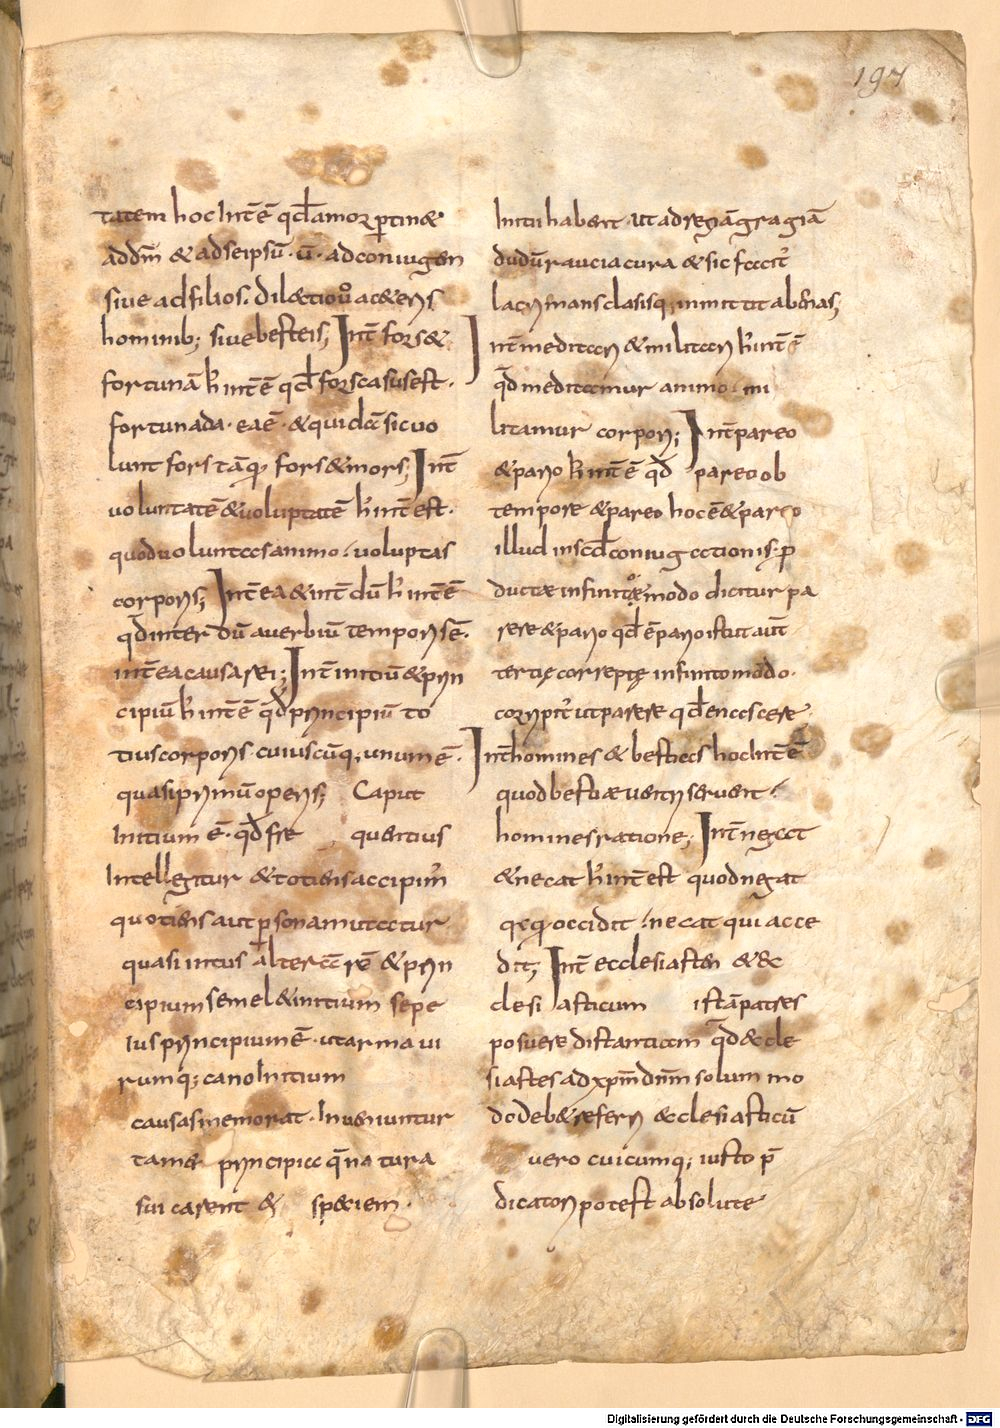 197
tatem hoc int̄ē qđ amor ptinæ
addm̄ & adseipsū · ū · ad coniugen
sive ad filios. dilectio ū ac&eris
hominib; sive besteis; Int̄ fors &
fortunā h̄ int̄ē qđ fors casus est ·
fortuna da · ea ē · & quidā sic vo
lunt fors tāq̨ fors & mors; Int̄
voluntatē & voluptatē h̄ int̄ est ·
quod voluntas animo voluptas
corporis; Int̄ ea & int̄ dū h̄ int̄ē
qđ inter dū averbiū temporis ē ·
int̄ ea causa rei; Int̄ initiū & prin
cipiū h̄ int̄ē qđ principiū to
tius corporis cuiuscūq; unum ē ·
quasi primū operis; Caput
Initium ē · qđ fre quentius
Intellegitur & totiens accipitr̄
quotiens aut psona mutatur
quasi intus altera rē & prin
cipium semel & initium sepe
Ius principium ē · ut arma vi
rumq; cano Initium
causas memorat · Inveniuntur
tam& principia q̄ natura
sui carent & speciem ·
Initii habent · ut ad regā gragiā
dudū raucia cura & sic facit̄
lacrimans clasisq; inmitit abenas;
Int̄ meditor & militor h̄ int̄ē
qđ meditamur animo · mi
litamur corpori; Int̄ pareo
& pario h̄ int̄ē qđ pareo ob
tempore & pareo hoc ē & pareo
illud inscđ coniugationis · p
ductæ infinito modo dicitur pa
rere & pario qđ ē pario istut aūt
tertię correptę infinito modo ·
coripit̄ ut parere qđ ē nascere ·
Int̄ homines & bestias hoc int̄ē
quod bestiæ ventri servent
homines ratione; Int̄ negat
& necat h̄ int̄ est quod negat
occidit necat qui acce
dit; Int̄ ecclesiasten & &c
clesiasticum istā patres
posuere distantiam qđ &cle
siastes ad xpm̄ dnm̄ solum mo
do deb& referri &clesiasticū
vero cuicumq; iusto p̄
dicatori potest absolute
Digitalisierung gefördert durch die Deutsche Forschungsgemeinschaft - DFG